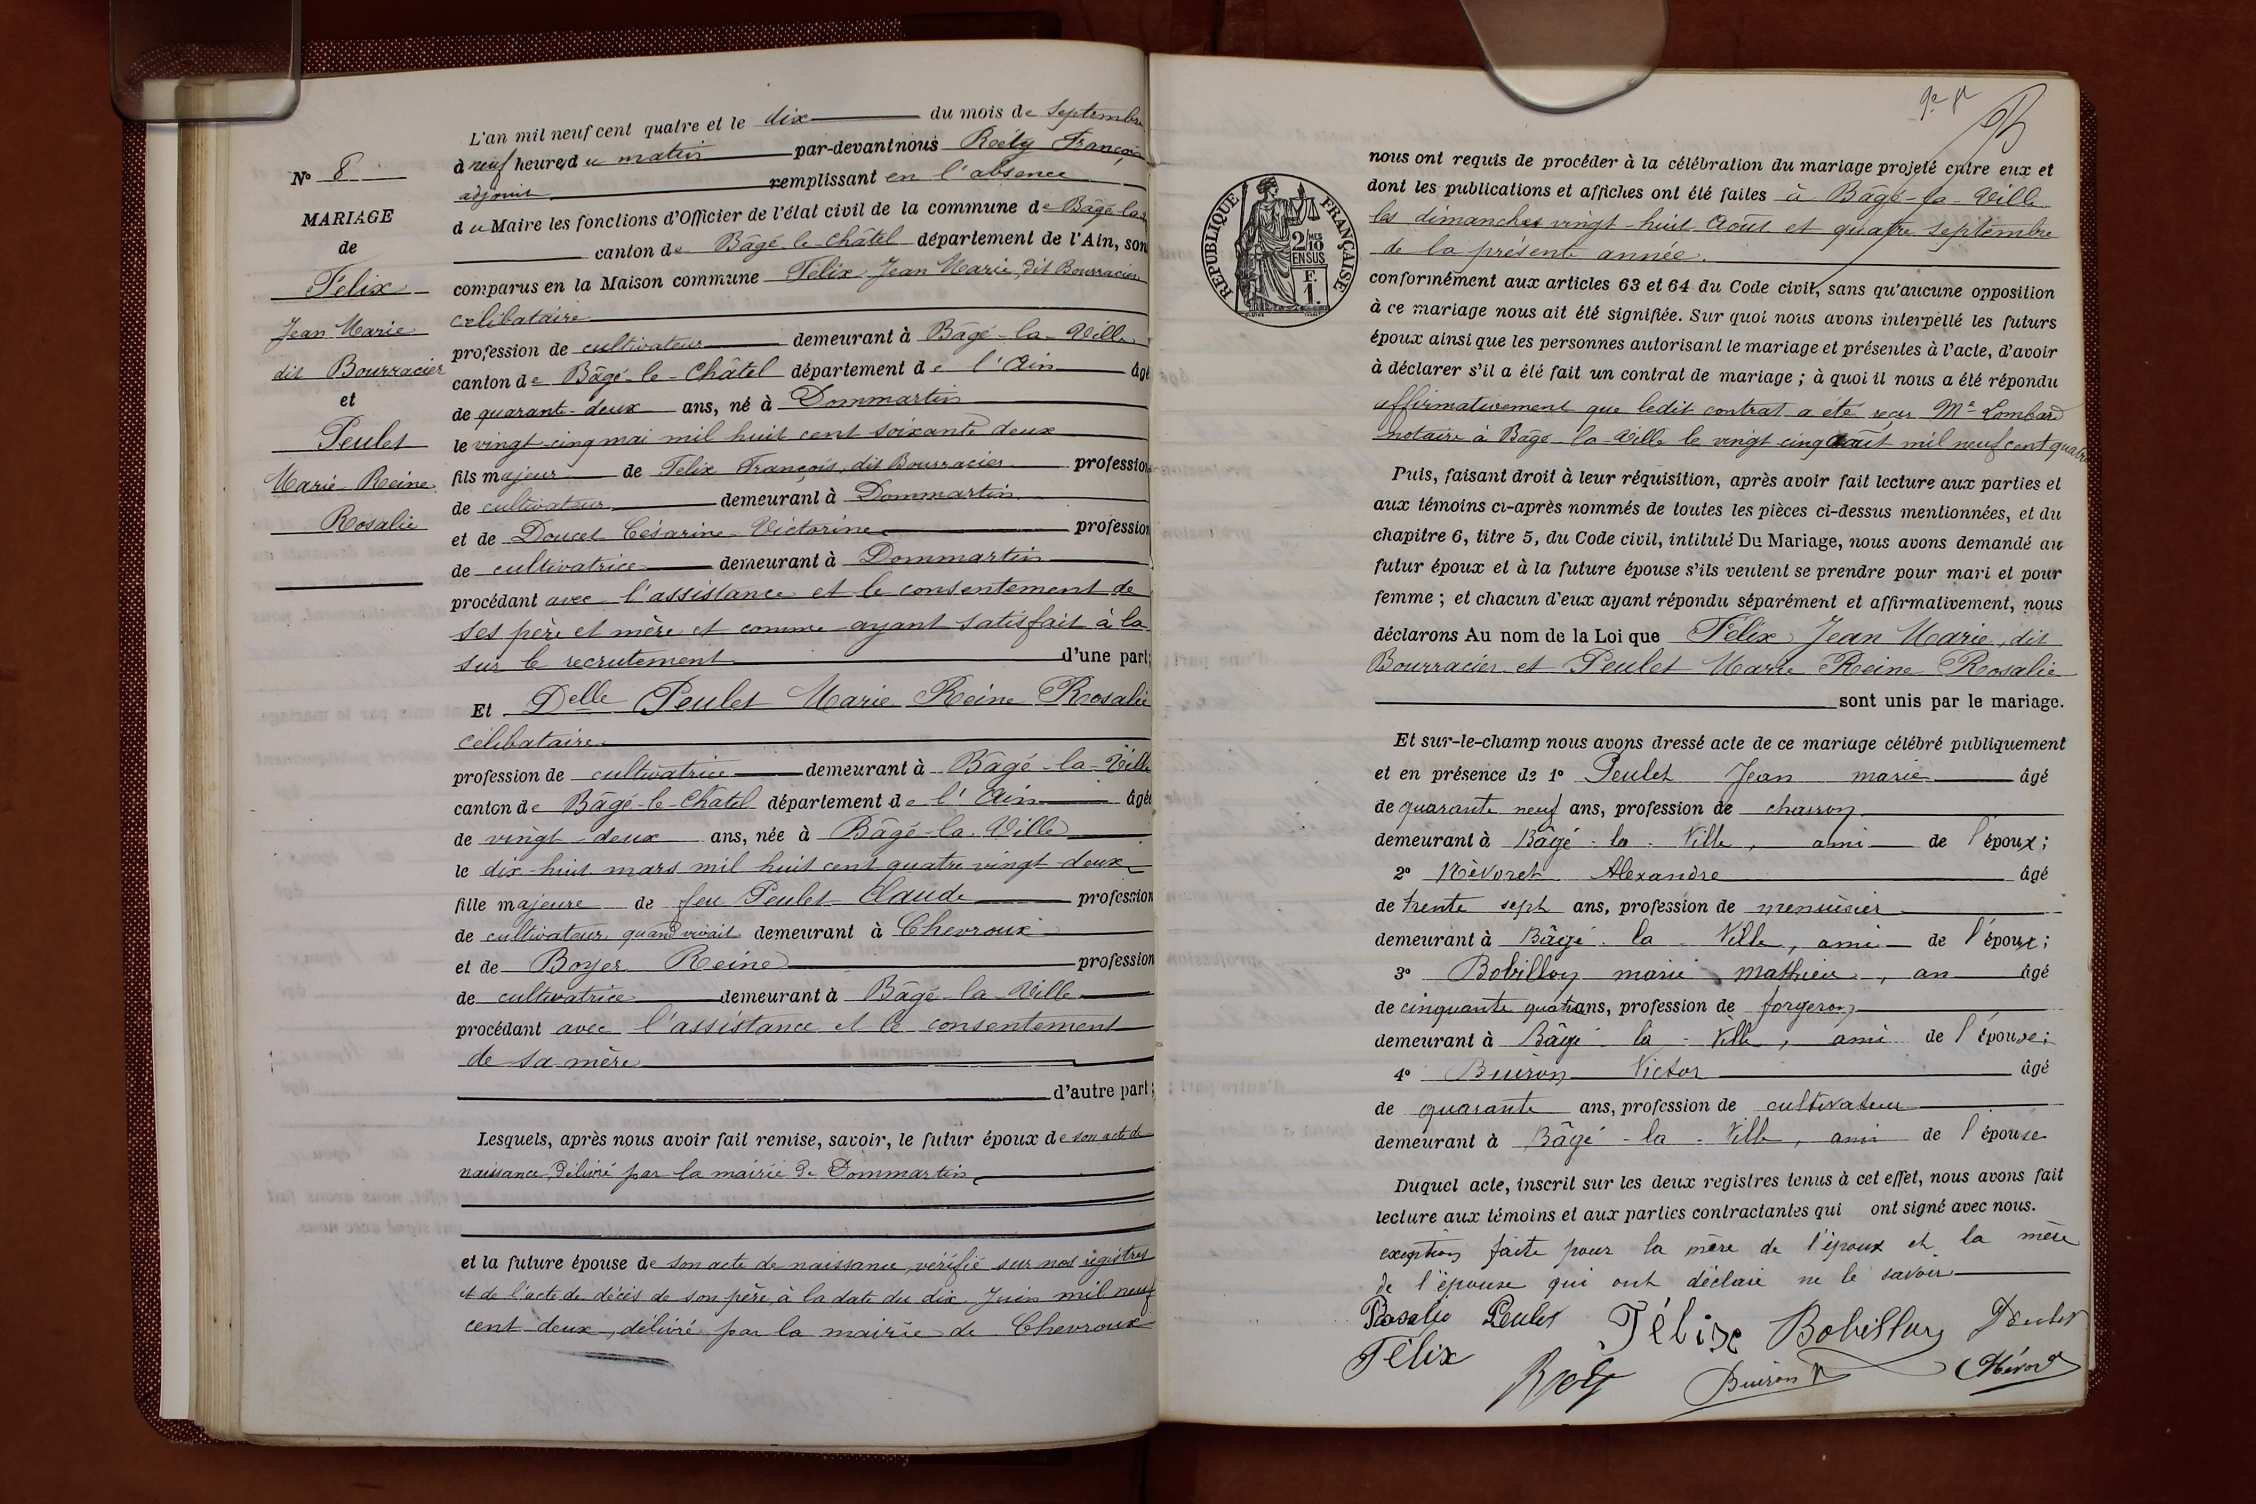 L'an mil neuf cent quatre et le dix du mois de Septembre
à neuf heures du matin par-devant nous François
adjoint remplissant en l'absence
du Maire les fonctions d'Officier de l'état civil de la commune de Bâgé-la-
canton de Bâgé-le-Châtel département de l'Ain, son
comparus en la Maison commune Félix Jean Marie, dit Bourracier
célibataire
profession de cultivateur demeurant à Bâgé-la-Ville
canton de Bâgé-le-Châtel département de l'Ain âgé
de quarante-deux ans, né à Dommartin
le vingt-cinq mai mil huit cent soixante deux
fils majeur de Félix François, dit Bourracier profession
de cultivateur demeurant à Dommartin
et de Doucet Césarine Victorine profession
de cultivatrice demeurant à Dommartin
procédant avec l'assistance et le consentement de
ses père et mère et comme ayant satisfait à la
sur le recrutement d'une part;
Et Delle Peulet Marie Reine Rosalie
célibataire
profession de cultivatrice demeurant à Bâgé-la-Ville
canton de Bâgé-le-Châtel département de l'Ain âgée
de vingt-deux ans, née à Bâgé-la-Ville
le dix-huit mars mil huit cent quatre vingt-deux
fille majeure de feu Peulet Claude profession
de cultivateur quand vivait demeurant à Chevroux
et de Boyer Reine profession
de cultivatrice demeurant à Bâgé-la-Ville
procédant avec l'assistance et le consentement
de sa mère
d'autre part;
Lesquels, après nous avoir fait remise, savoir, le futur époux de son acte de
naissance, délivré par la mairie de Dommartin
et la future épouse de son acte de naissance, vérifié sur nos registres
et de l'acte de décès de son père, à la date du dix Juin mil neuf
cent deux, délivré par la mairie de Chevroux
N° 8
MARIAGE
de
Félix
Jean Marie
dit Bourracier
et
Peulet
Marie Reine
Rosalie
RÉPUBLIQUE FRANÇAISE
2/10MES
EN SUS
F.
1.
nous ont requis de procéder à la célébration du mariage projeté entre eux et
dont les publications et affiches ont été faites à Bâgé-la-Ville
les dimanches vingt-huit Août et quatre Septembre
de la présente année.
conformément aux articles 63 et 64 du Code civil, sans qu'aucune opposition
à ce mariage nous ait été signifiée. Sur quoi nous avons interpellé les futurs
époux ainsi que les personnes autorisant le mariage et présentes à l'acte, d'avoir
à déclarer s'il a été fait un contrat de mariage; à quoi il nous a été répondu
affirmativement que ledit contrat a été reçu Me Lombard
notaire à Bâgé-la-Ville le vingt cinq août mil neuf cent quatre
Puis, faisant droit à leur réquisition, après avoir fait lecture aux parties et
aux témoins ci-après nommés de toutes les pièces ci-dessus mentionnées, et du
chapitre 6, titre 5, du Code civil, intitulé Du Mariage, nous avons demandé au
futur époux et à la future épouse s'ils veulent se prendre pour mari et pour
femme; et chacun d'eux ayant répondu séparément et affirmativement, nous
déclarons Au nom de la Loi que Félix Jean Marie, dit
Bourracier et Peulet Marie Reine Rosalie
sont unis par le mariage.
Et sur-le-champ nous avons dressé acte de ce mariage célébré publiquement
et en présence de 1° Peulet Jean marie âgé
de quarante neuf ans, profession de charron
demeurant à Bâgé-la-Ville, ami de l'époux;
2° Névoret Alexandre âgé
de trente sept ans, profession de menuisier
demeurant à Bâgé-la-Ville, ami de l'époux;
3° Bobillon marie mathieu, an âgé
de cinquante quatre ans, profession de forgeron
demeurant à Bâgé-la-Ville, ami de l'épouse;
4° Buiron Victor âgé
de quarante ans, profession de cultivateur
demeurant à Bâgé-la-Ville, ami de l'épouse
Duquel acte, inscrit sur les deux registres tenus à cet effet, nous avons fait
lecture aux témoins et aux parties contractantes qui ont signé avec nous.
exception faite pour la mère de l'époux et la mère
de l'épouse qui ont déclaré ne le savoir
Rosalie Peulet Félix Bobillon Peulet
Félix Buiron Névoret